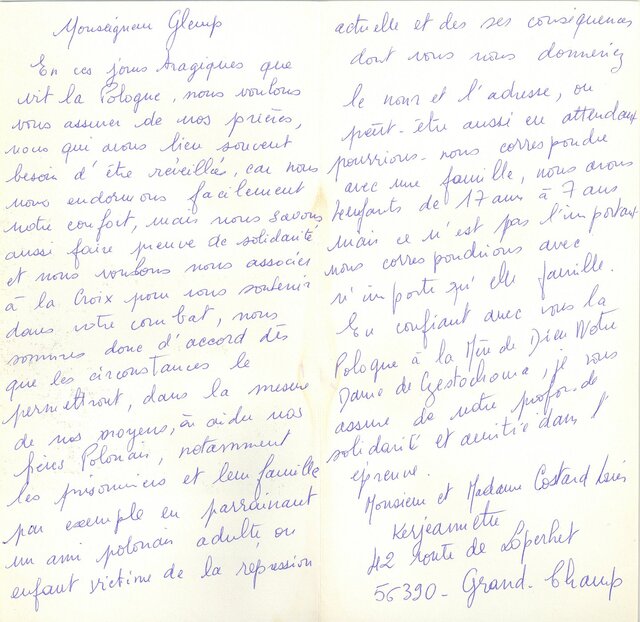 Monseigneur Glemp
En ces jours tragiques que
vit la Pologne, nous voulons
vous assurer de nos prières,
nous qui avons bien souvent
besoin d'être réveillés, car nous
nous endormons facilement
notre confort, mais nous savons
aussi faire preuve de solidarité
et nous voulons nous associer
à la Croix pour vous soutenir
dans votre combat, nous
sommes donc d'accord dès
que les circonstances le
permettront, dans la mesure
de nos moyens, à aider nos
frères Polonais, notamment
les prisonniers et leur famille
par exemple en parrainant
un ami polonais adulte ou
enfant victime de la répression
actuelle et des ses conséquences
dont vous nous donneriez
le nom et l'adresse, ou
peut-être aussi en attendant
pourrions-nous correspondre
avec une famille, nous avons
enfants de 17 ans à 7 ans
mais ce n'est pas l'important
nous correspondrions avec
n'importe qu'elle famille.
En confiant avec vous la
Pologne à la Mère de Dieu Notre
Dame de Czestochowa, je vous
assure de notre profonde
solidarité et amitié dans l'
épreuve.
Monsieur et Madame Costard
Kerjeannette
42 route de Loperhet
56390 - Grand-Champ